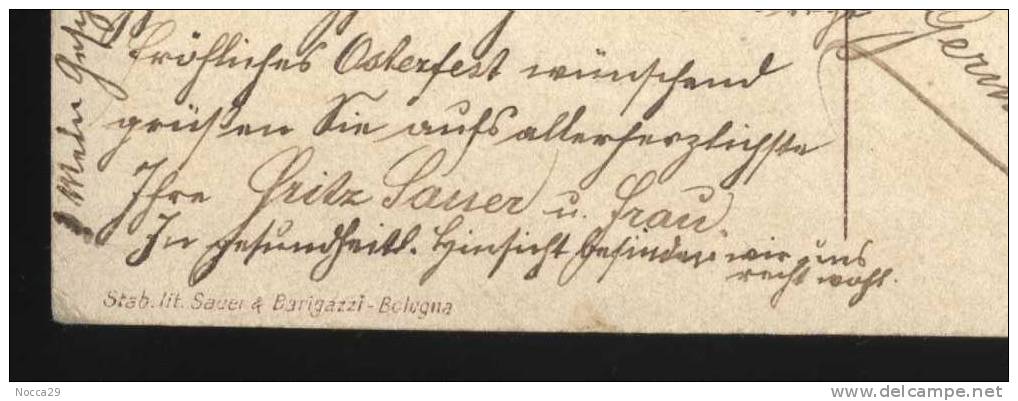 fröhliches Osterfest wünschend
grüßen Sie aufs allerherzlichste
Ihre Fritz Sauer u. Frau.
In gesundheitl. Hinsicht befinden wir uns
recht wohl.
Stab. lit. Sauer & Barigazzi - Bologna
Mein
Germ
Nocca29
delcampe.net